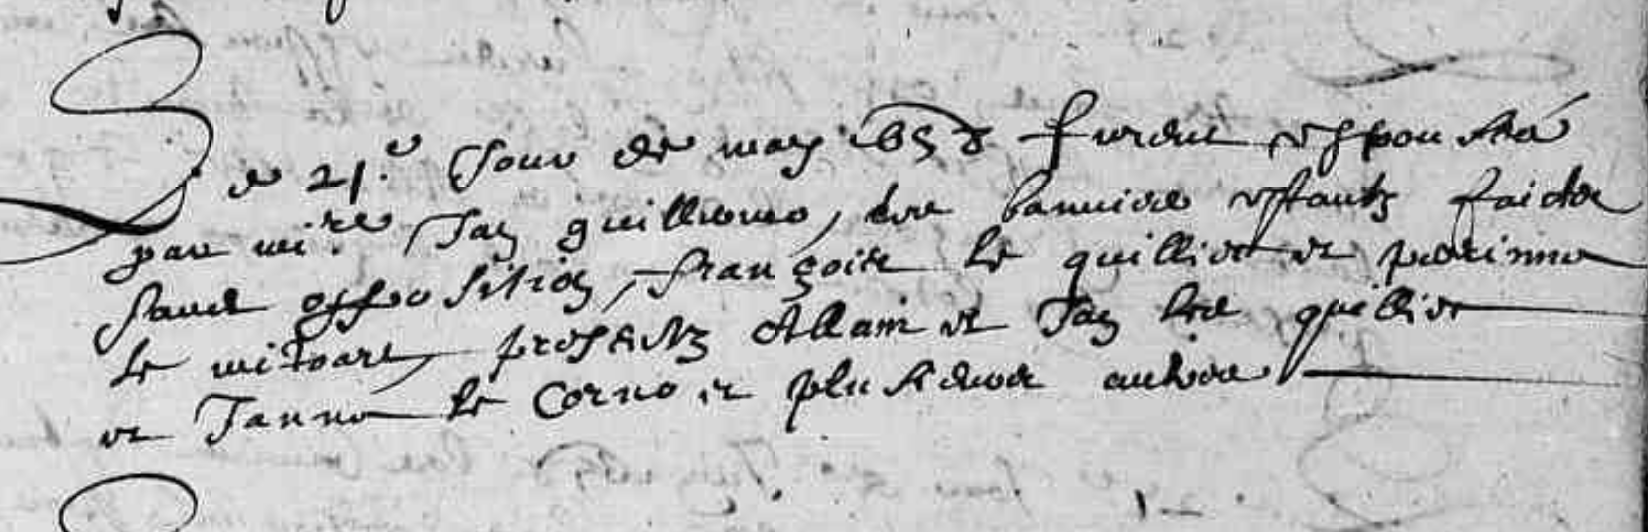 Le 21.e Jour de may 1658 furent espousés
par mi.re Jan guillemo, les bannies estants faictes
sans opposition, françois le quillier et perinne
le mitouart, presents Allain et Jan les quillier
et Janne le Corno et plusieurs aultres